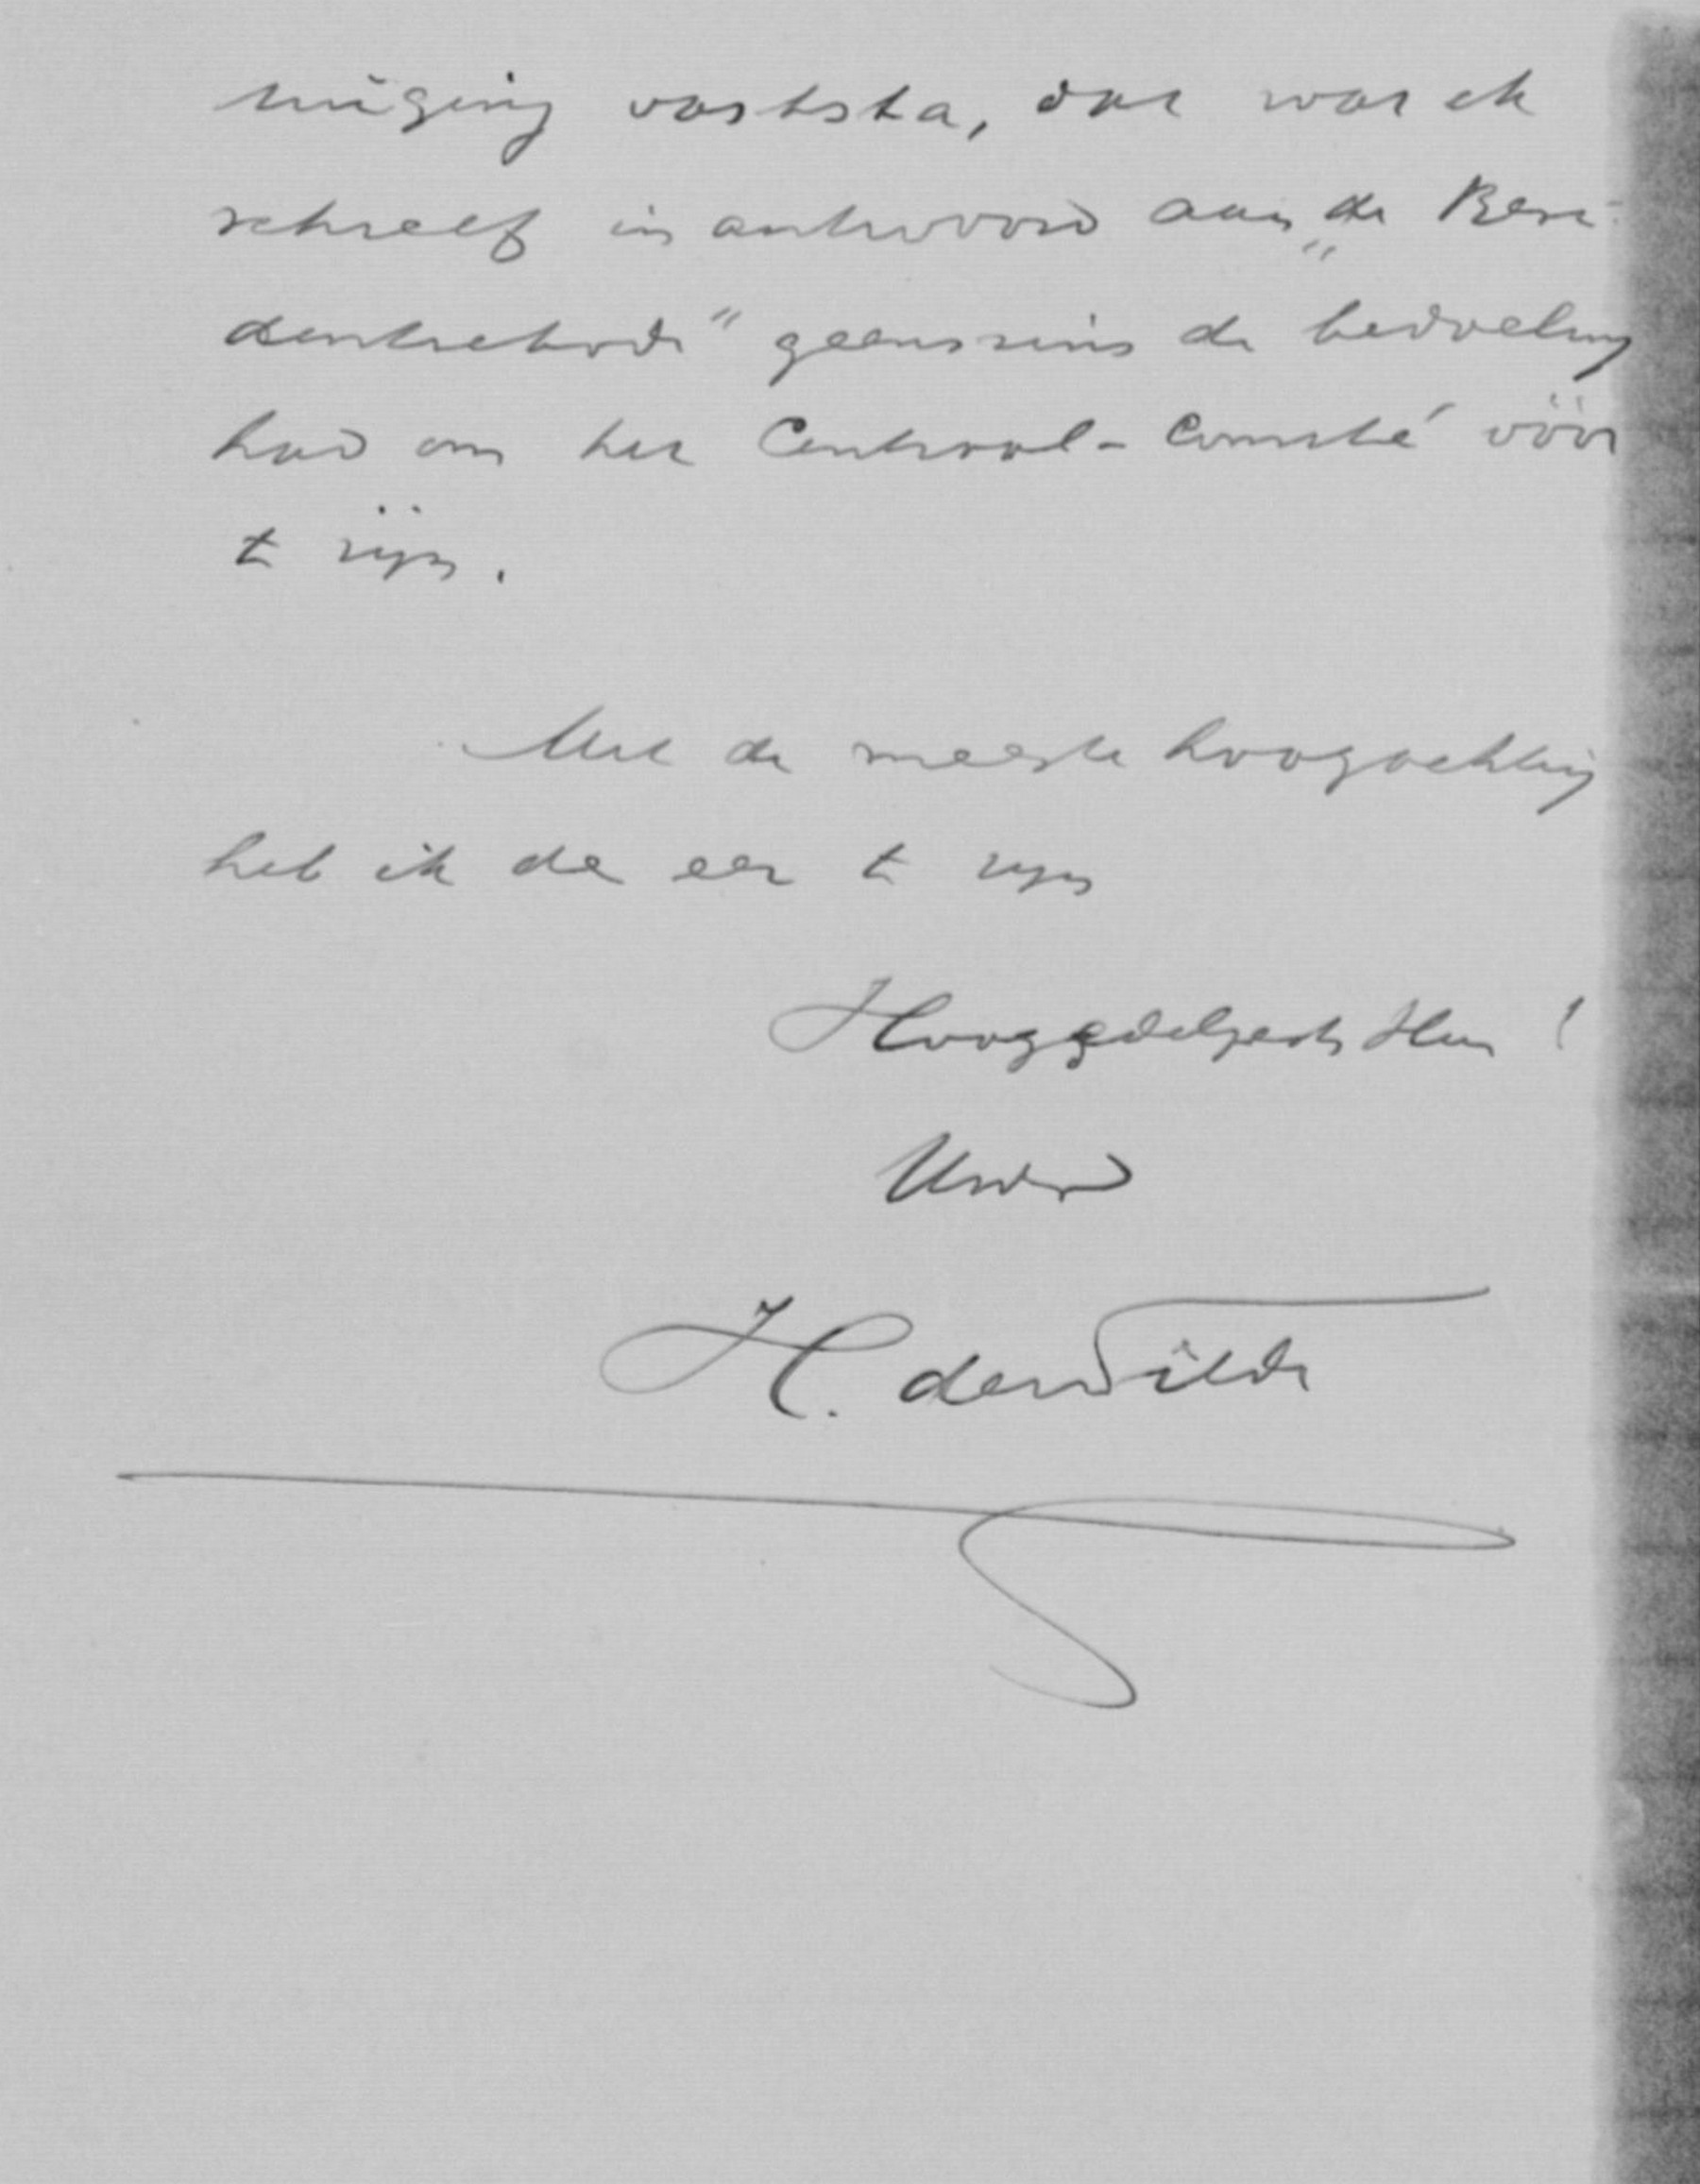 tuiging vaststa, dat wat ik
schreef in antwoord aan „de Resi-
dentiebode" geenszins de bedoeling
had om het Centraal-Comité vóór
te zijn.
Met de meeste hoogachting
heb ik de eer te zijn
HoogEdelgestr Heer !
Uwd
H. de Wilde